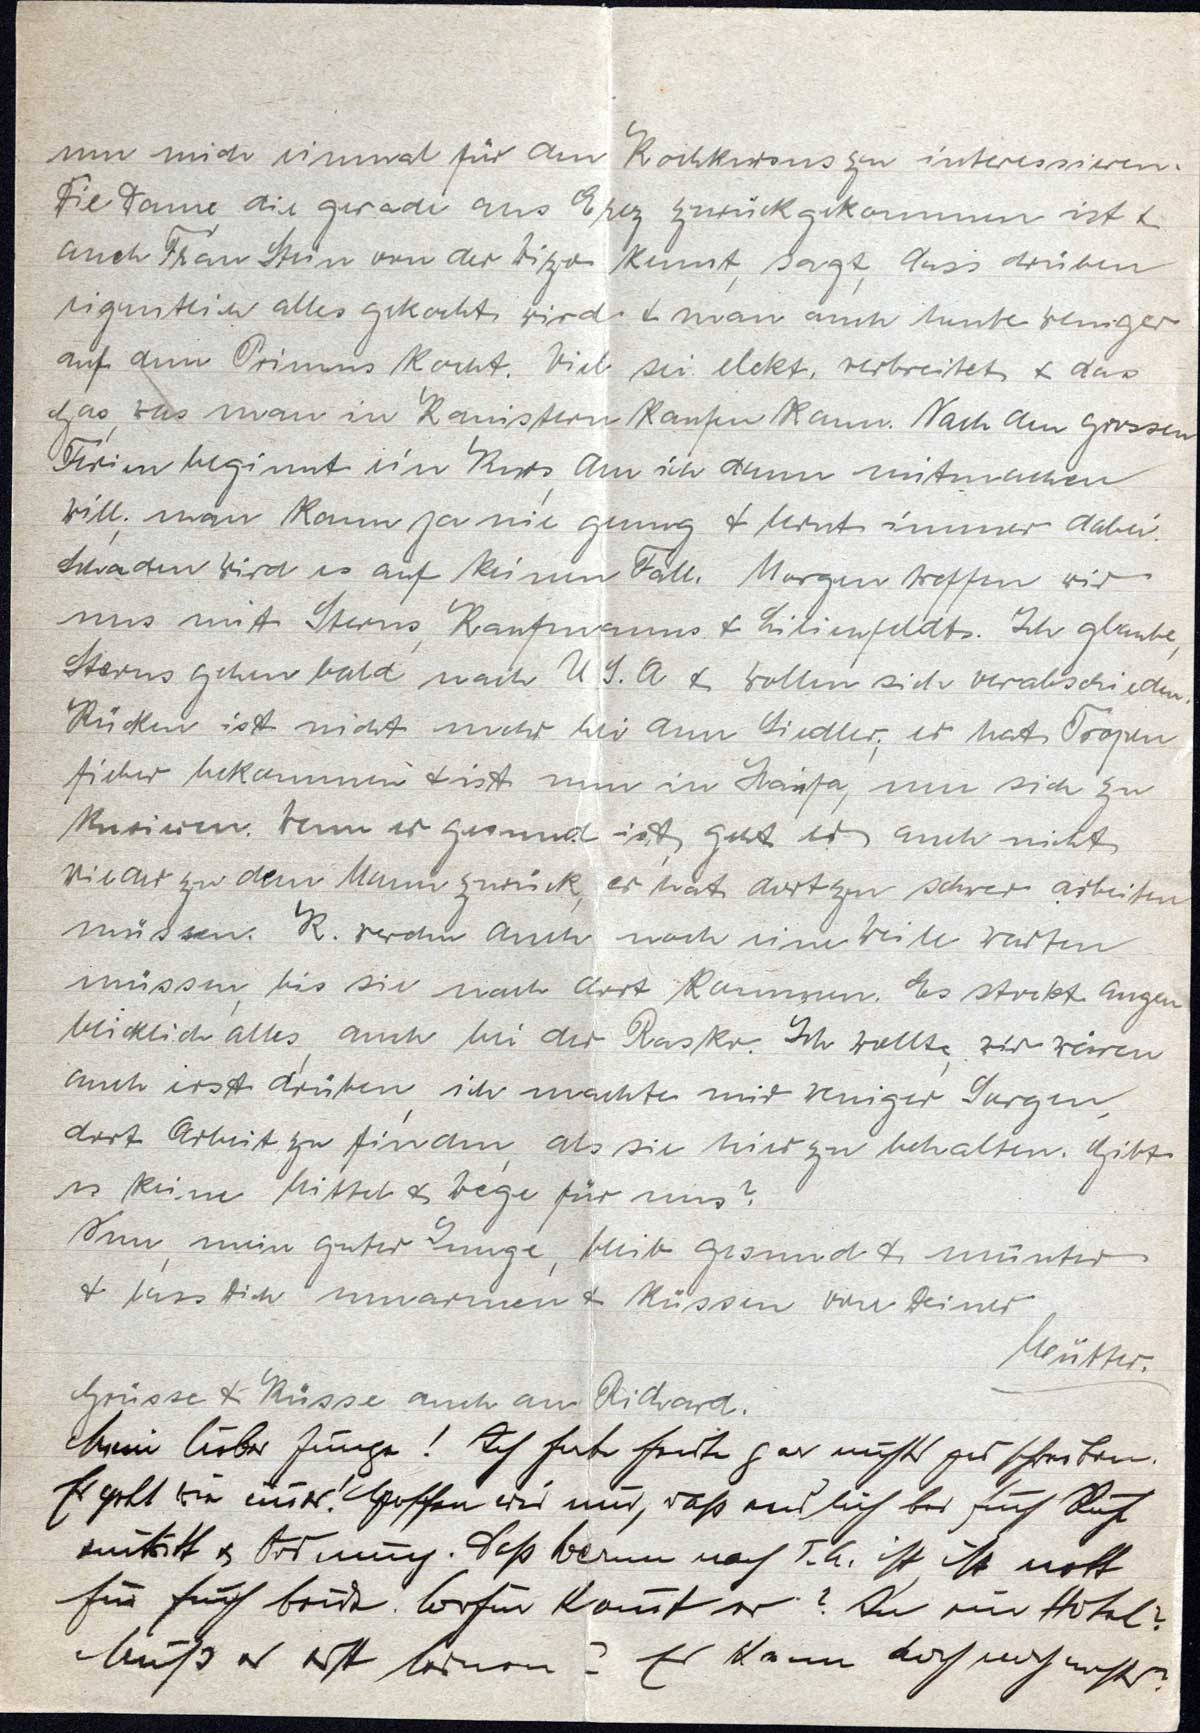 um mich einmal für den Kochkursus zu interessieren.
Die Dame, die gerade aus Erez zurückgekommen ist &
auch Frau Stein von der Wizo kennt, sagt, dass drüben
eigentlich alles gekocht wird & man auch heute weniger
auf dem Primus kocht. Viel sei elekt. verbreitet & das
Gas, was man in Kanistern kaufen kann. Nach den grossen
Ferien beginnt ein Kurs, den ich dann mitmachen
will. man kann ja nie genug & lernt immer dabei.
Schaden wird es auf keinen Fall. Morgen treffen wir
uns mit Sterns, Kaufmanns & Lilienfeldts. Ich glaube,
Sterns gehen bald nach U.S.A & wollen sich verabschieden.
ist nicht mehr bei dem Siedler, er hat Tropen
fieber bekommen & ist nun in Haifa, um sich zu
kurieren. Wenn er gesund ist, geht er auch nicht
wieder zu dem Mann zurück, er hat dort zu schwer arbeiten
müssen. R. werden auch noch eine Weile warten
müssen, bis sie nach dort kommen. Es stockt augen
blicklich alles, auch bei der Rasko. Ich wollte, wir wären
auch erst drüben, ich machte mir weniger Sorgen,
dort Arbeit zu finden, als sie hier zu behalten. Gibt
es keine Mittel & Wege für uns?
Nun, mein guter Junge, bleib gesund & munter
& lass Dich umarmen & küssen von Deiner
Mutter.
Grüsse & Küsse auch an Richard.
Mein lieber Junge! Ich habe heute gar nichts zu schreiben.
Es geht wie immer! Hoffen wir nur, daß endlich bei Euch Ruhe
eintritt & Ordnung. Daß Werner nach T.A. ist, ist nett
für Euch beide. Wohin kommt er? In ein Hotel?
Muß er erst lernen? Er kann doch noch nichts?